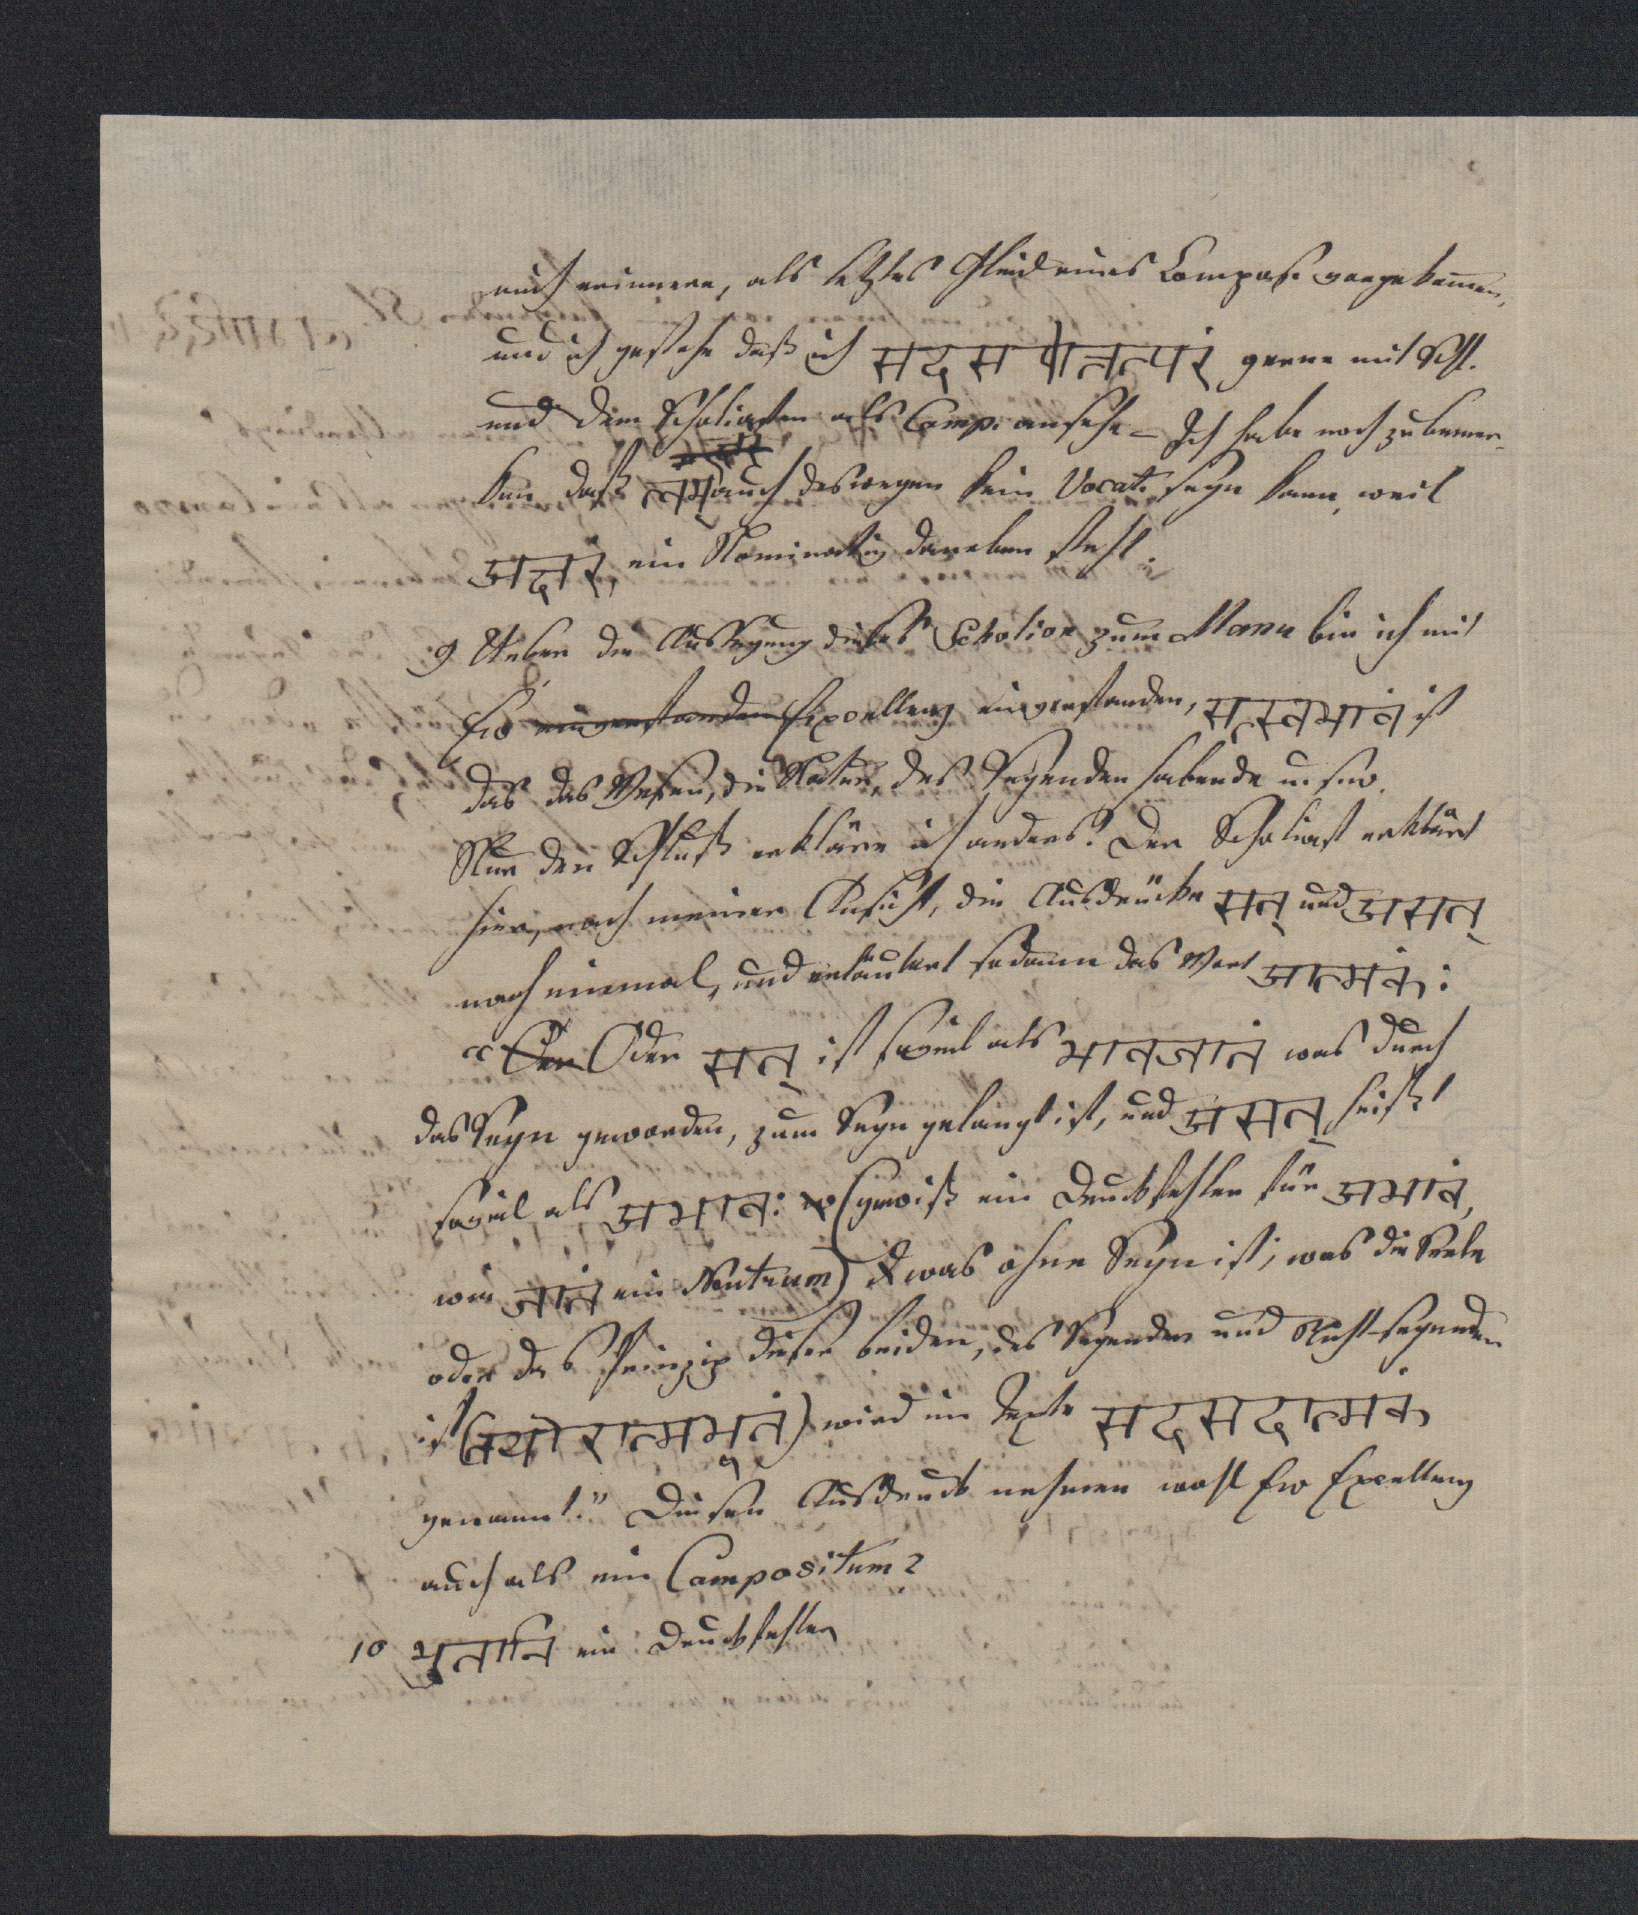 mich erinnere, als letztes Glied eines Compos. vorgekommen,
und ich gestehe daß ich सदसत्तत्परं gerne mit Schl.
und dem Scholiasten als Comp. ansehe – Ich habe noch zu bemer-
ken daß त्वम् auch deswegen kein Vocat. seyn kann, weil
अक्षरं, ein Nominativ daneben steht.
9 Ueber die Auslegung dieses Scholion zum Manu bin ich mit
Ew einverstanden Excellenz einverstanden, सत्स्वभावं ist
das das Wesen, die Natur, des Seyenden habende u.s.w.
Nur den Schluß erkläre ich anders. Der Scholiast erklärt
hier, nach meiner Ansicht, die Ausdrücke सत् und असत्
noch einmal, und erläutert sodann das Wort आत्मकं:
"Oder सत् ist soviel als भावजातं was durch
das Seyn geworden, zum Seyn gelangt ist, und असत् heißt
soviel als अभावः (gewiß ein Druckfehler für अभावं,
wie जातं ein Neutrum) was ohne Seyn ist; was die Seele
oder das Prinzip dieser beiden, des Seyenden und Nicht-seyenden
ist (तयोरात्मभूतं) wird im Texte सदसदात्मकं
genannt." Diesen Ausdruck nehmen wohl Ew Excellenz
auch als ein Compositum?
10 भूतानि ein Druckfehler